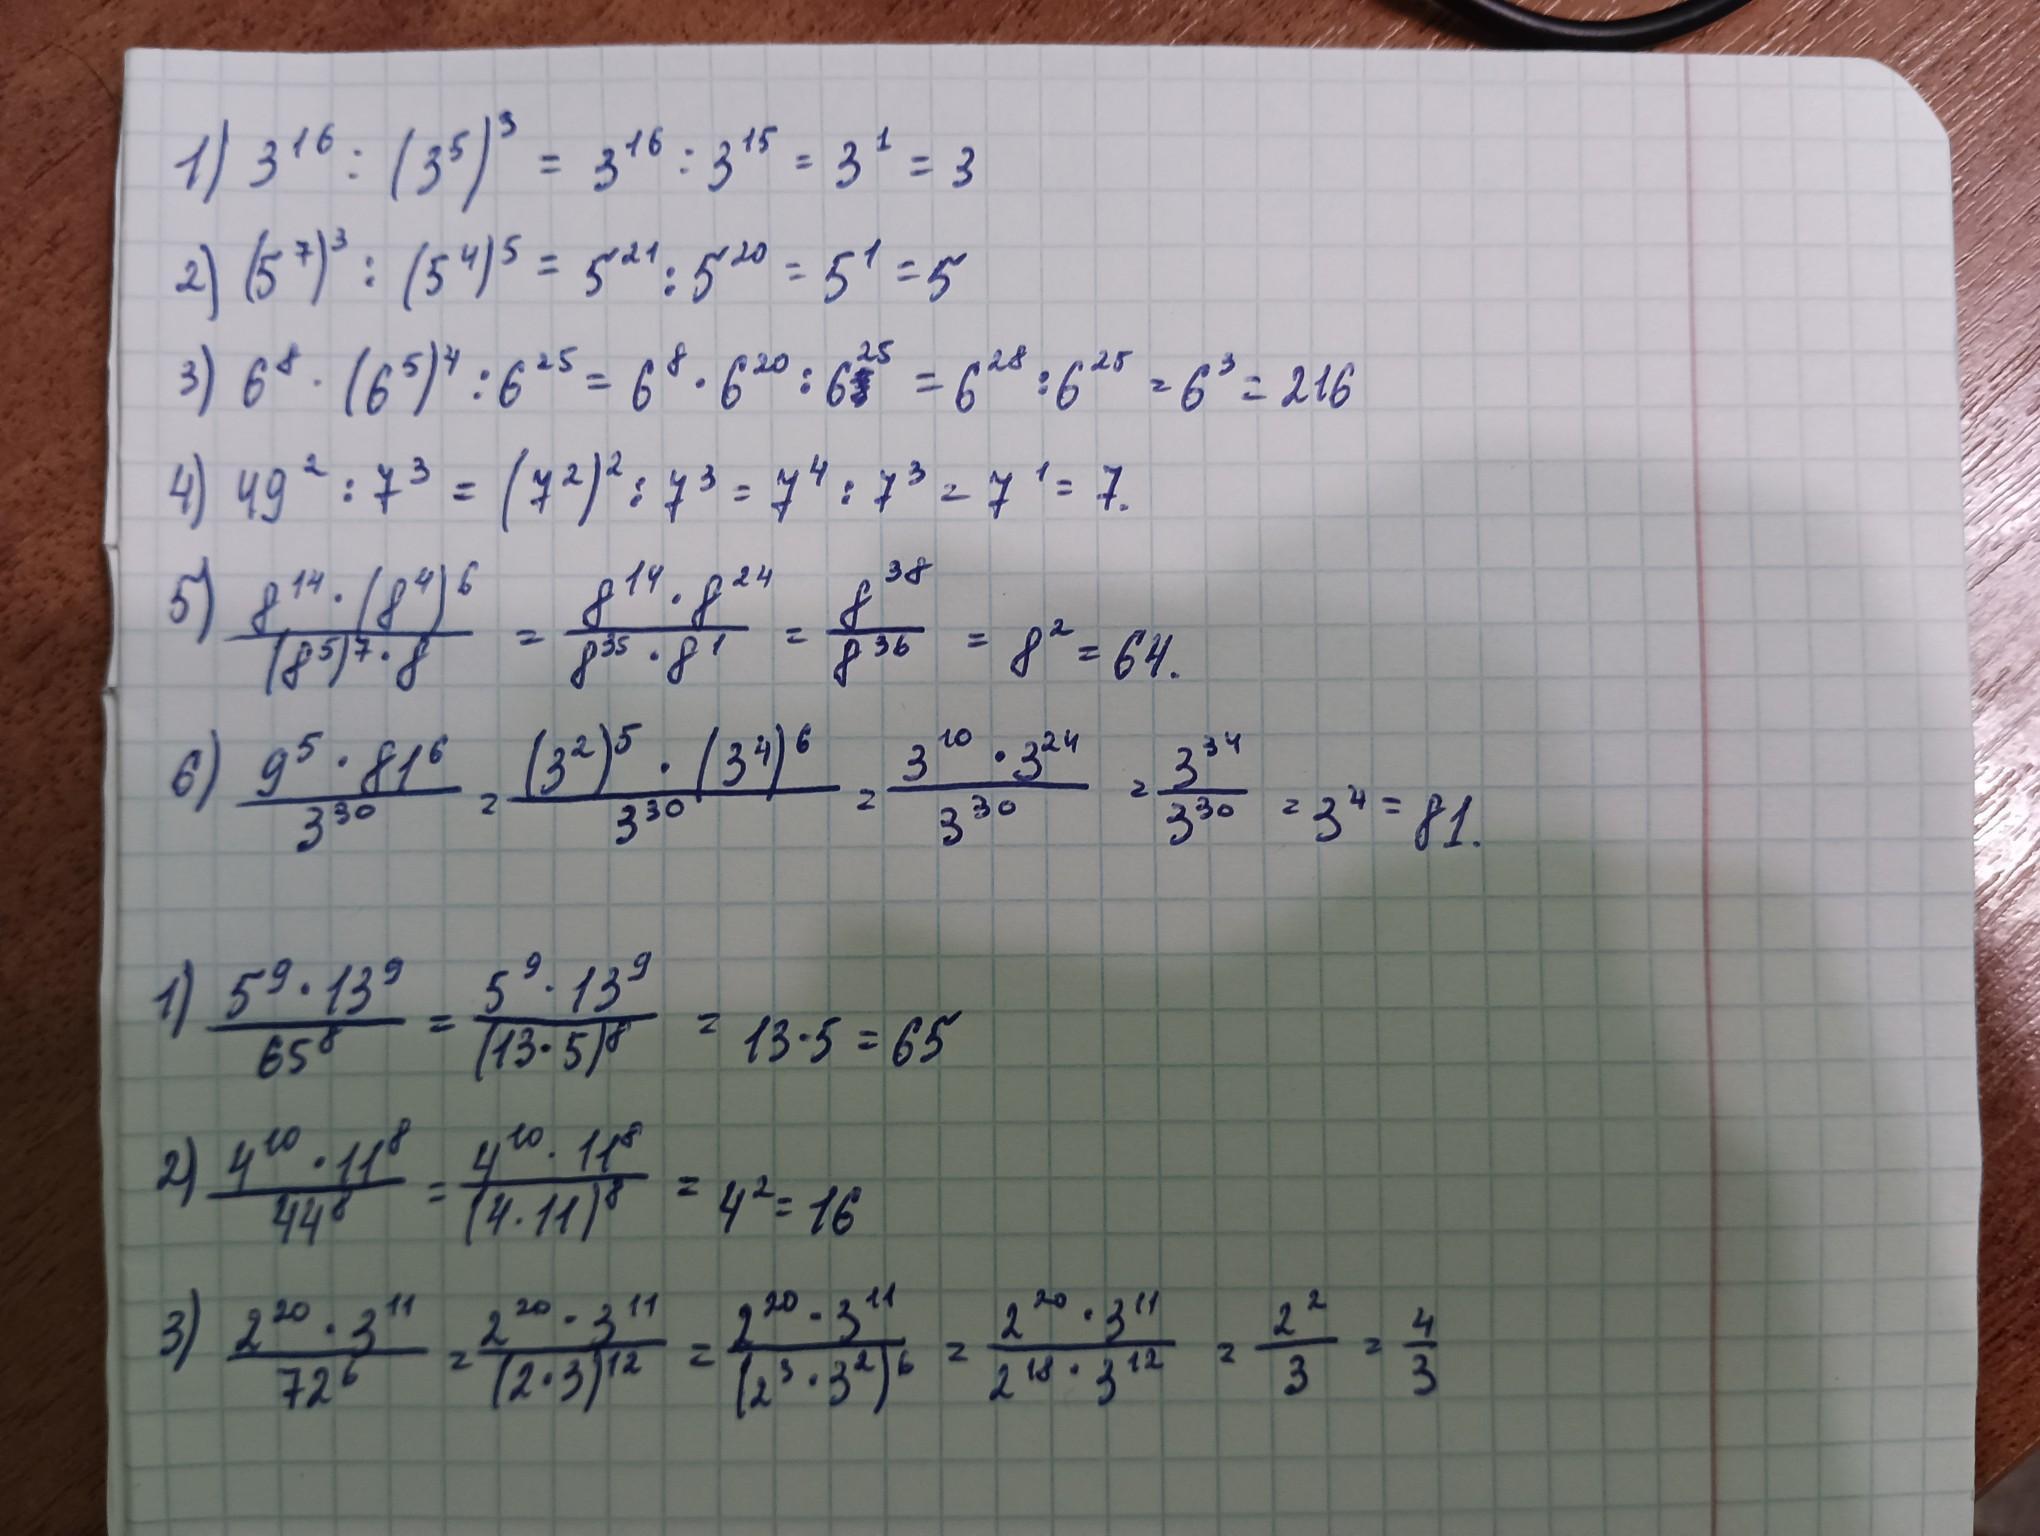 1) 3^16 : (3^5)^3 = 3^16 : 3^15 = 3^1 = 3
2) (5^7)^3 : (5^4)^5 = 5^21 : 5^20 = 5^1 = 5
3) 6^8 · (6^5)^4 : 6^25 = 6^8 · 6^20 : 6^25 = 6^28 : 6^25 = 6^3 = 216
4) 49^2 : 7^3 = (7^2)^2 : 7^3 = 7^4 : 7^3 = 7^1 = 7.
5) (8^14 · (8^4)^6)/((8^5)^7 · 8) = (8^14 · 8^24)/(8^35 · 8^1) = 8^38/8^36 = 8^2 = 64.
6) (9^5 · 81^6)/3^30 = ((3^2)^5 · (3^4)^6)/3^30 = (3^10 · 3^24)/3^30 = 3^34/3^30 = 3^4 = 81.
1) (5^9 · 13^9)/65^8 = (5^9 · 13^9)/(13·5)^8 = 13·5 = 65
2) (4^10 · 11^8)/44^8 = (4^10 · 11^8)/(4·11)^8 = 4^2 = 16
3) (2^20 · 3^11)/72^6 = (2^20 · 3^11)/(2·3)^12 = (2^20 · 3^11)/(2^3 · 3^2)^6 = (2^20 · 3^11)/(2^18 · 3^12) = 2^2/3 = 4/3